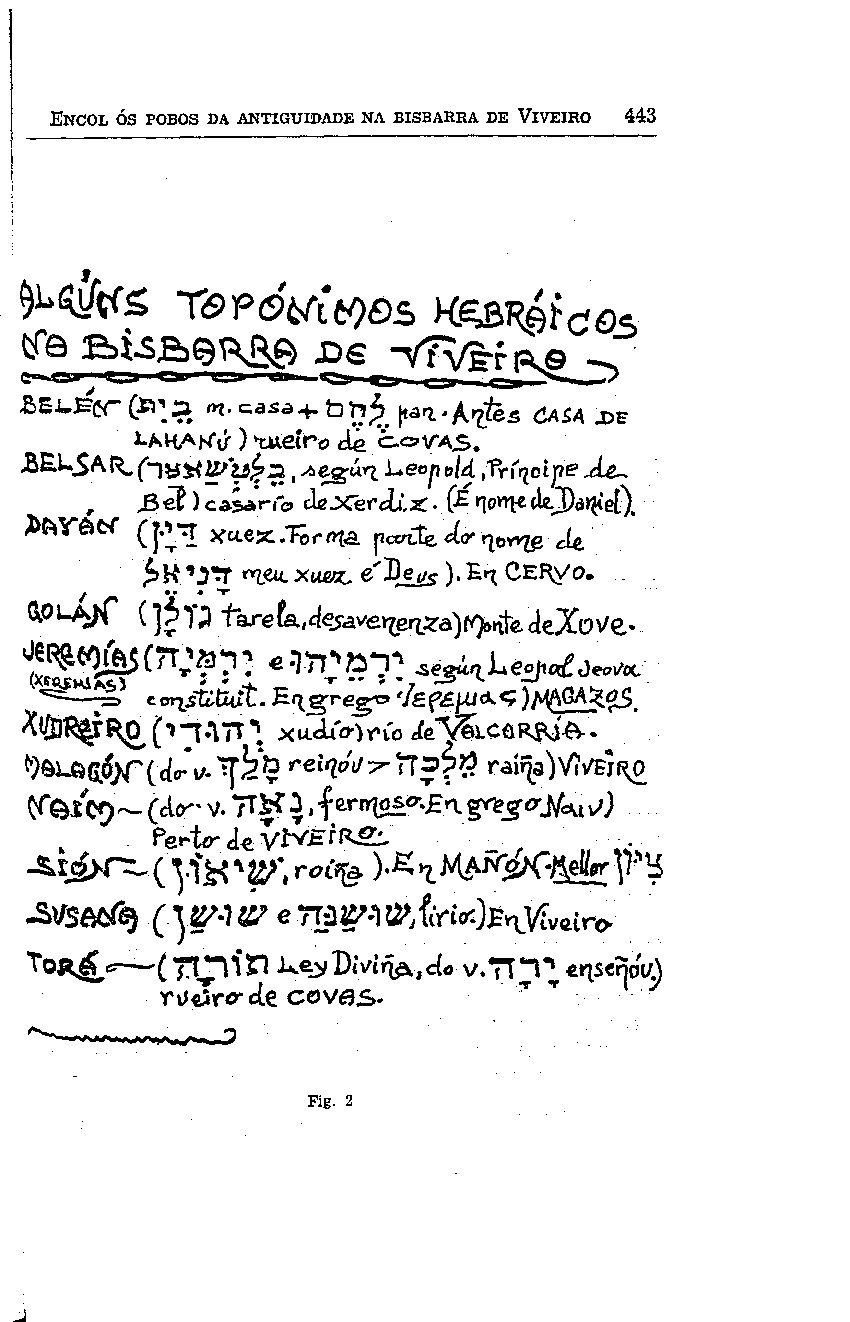 ENCOL ÓS POBOS DA ANTIGUIDADE NA BISBARRA DE VIVEIRO 443
ALGÚNS TOPÓNIMOS HEBRÁICOS
NA BISBARRA DE VIVEIRO
BELÉN (בַּיִת m. casa + לֶחֶם pan. Antes CASA DE
LAHANÚ) rueiro de COVAS.
BELSAR (בֵּלְשַׁאצַּר, según Leopold, Príncipe de
Bel) casarío de Xerdiz. (É nome de Daniel).
DAYÁN (דַּיָּן xuez. Forma parte do nome de
דָּנִיֵּאל meu xuez é Deus). En CERVO.
GOLÁN (גּוֹלָן tarefa, desavenenza) Monte de Xove.
JEREMÍAS (יִרְמְיָה e יִרְמְיָהוּ según Leopol Jeova
(XEREMIAS) constituit. En grego Ἰερεμιας) MAGAZOS.
XUDREIRO (יְהוּדִי xudío) río de VALCARRIA.
MALAGÓN (do v. מָלַךְ reinóu > מַלְכָּה raíña) VIVEIRO
NAÍM (do v. נָאָה, fermoso. En grego Ναιν)
Perto de VIVEIRO.
SIÓN (שִׁיאוֹן, roíña). En MAÑÓN. Mellor צִיּוֹן
SUSANA (שׁוּשַׁן e שׁוֹשַׁנָּה, lirio.) En Viveiro
TORÁ (תּוֹרָה Ley Diviña, do v. יָרָה enseñóu.)
rueiro de COVAS.
Fig. 2